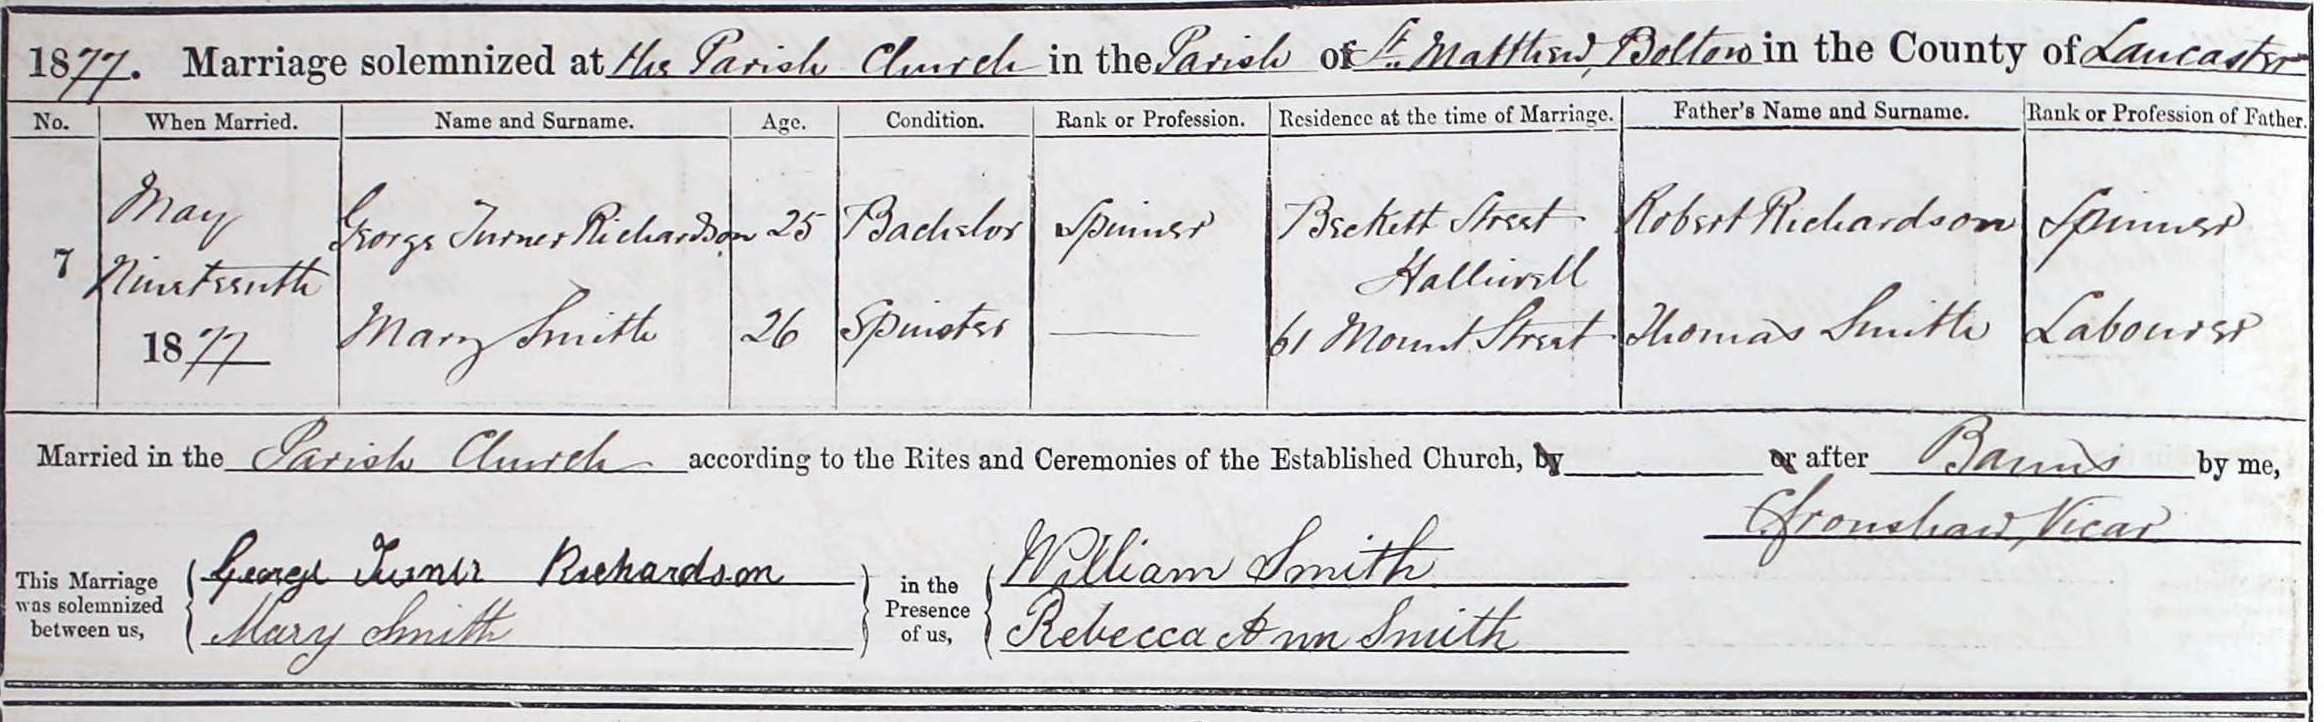 1877. Marriage solemnized at the Parish Church in the Parish of St. Matthew, Bolton in the County of Lancaster
No. When Married. Name and Surname. Age. Condition. Rank or Profession. Residence at the time of Marriage. Father's Name and Surname. Rank or Profession of Father.
7 May Nineteenth 1877
George Turner Richardson 25 Bachelor Spinner Beckett Street Halliwell Robert Richardson Spinner
Mary Smith 26 Spinster 61 Mount Street Thomas Smith Labourer
Married in the Parish Church according to the Rites and Ceremonies of the Established Church, by or after Banns by me,
Cronshaw, Vicar
This Marriage was solemnized between us,
George Turner Richardson
Mary Smith
in the Presence of us,
William Smith
Rebecca Ann Smith